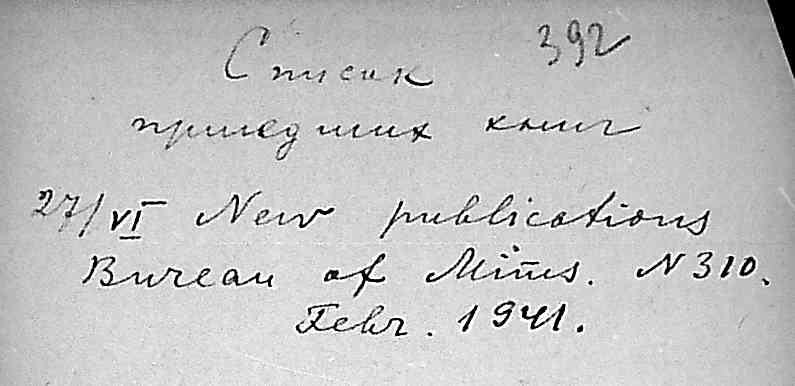 392
Список
пришедших книг
27/VI New publications
Bureau of Mines. N 310.
Febr. 1941.